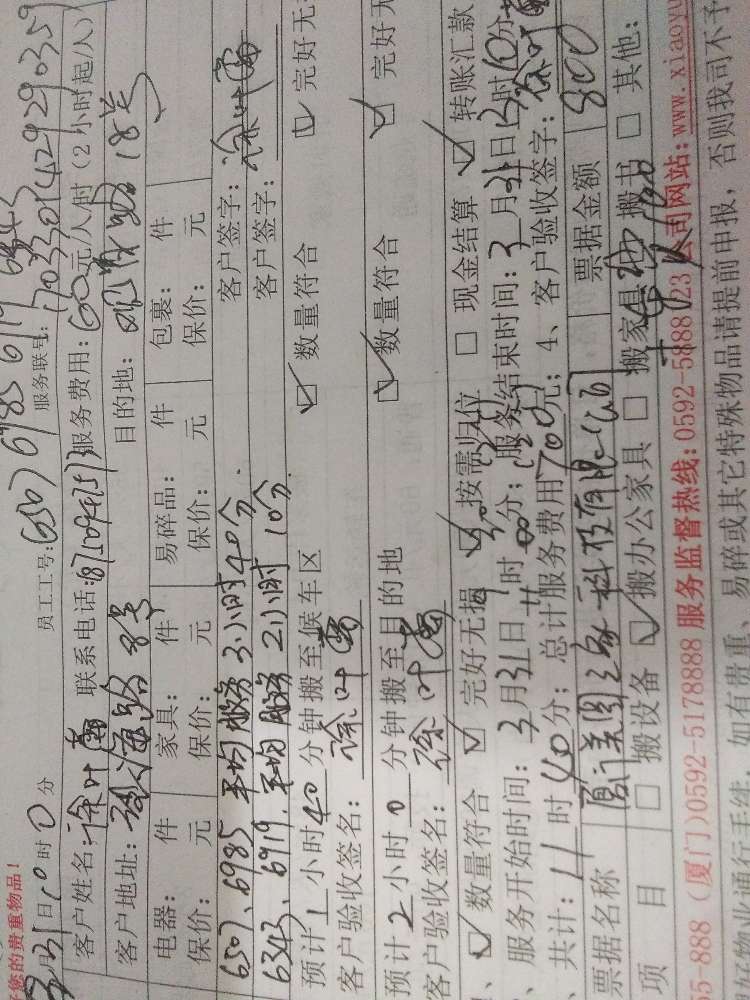 好您的贵重物品！
3月31日10时0分 员工工号：6507 6985 6719 6343
服务联号：1703301429290359
客户姓名：徐叶 联系电话： 服务费用：60元/人/时（2小时起/人）
客户地址：海路8号 目的地：路18号
电器： 件 家具： 件 易碎品： 件 包裹： 件
保价： 元 保价： 元 保价： 元 保价： 元
6507、6985 平均服务3小时40分. 客户签字：徐叶
6343、6919、平均服务2小时10分. 客户签字：
预计1小时40分钟搬至候车区 数量符合 完好无
客户验收签名：徐叶
预计2小时0分钟搬至目的地 数量符合 完好无
客户验收签名：徐叶
数量符合 完好无损 按需归位 现金结算 转账汇款
、服务开始时间：3月31日 时 分；服务结束时间：3月31日 时10分
、共计：11时40分；总计服务费用700元；4、客户验收签字：徐叶
票据名称 厦门美图之家科技有限公司 票据金额 800
项 目 搬设备 搬办公家具 搬家具 搬书 其他：
5-888（厦门）0592-5178888 服务监督热线：0592-5888123 公司网站：www.xiaoyu
好物业通行手续，如有贵重、易碎或其它特殊物品请提前申报，否则我司不予